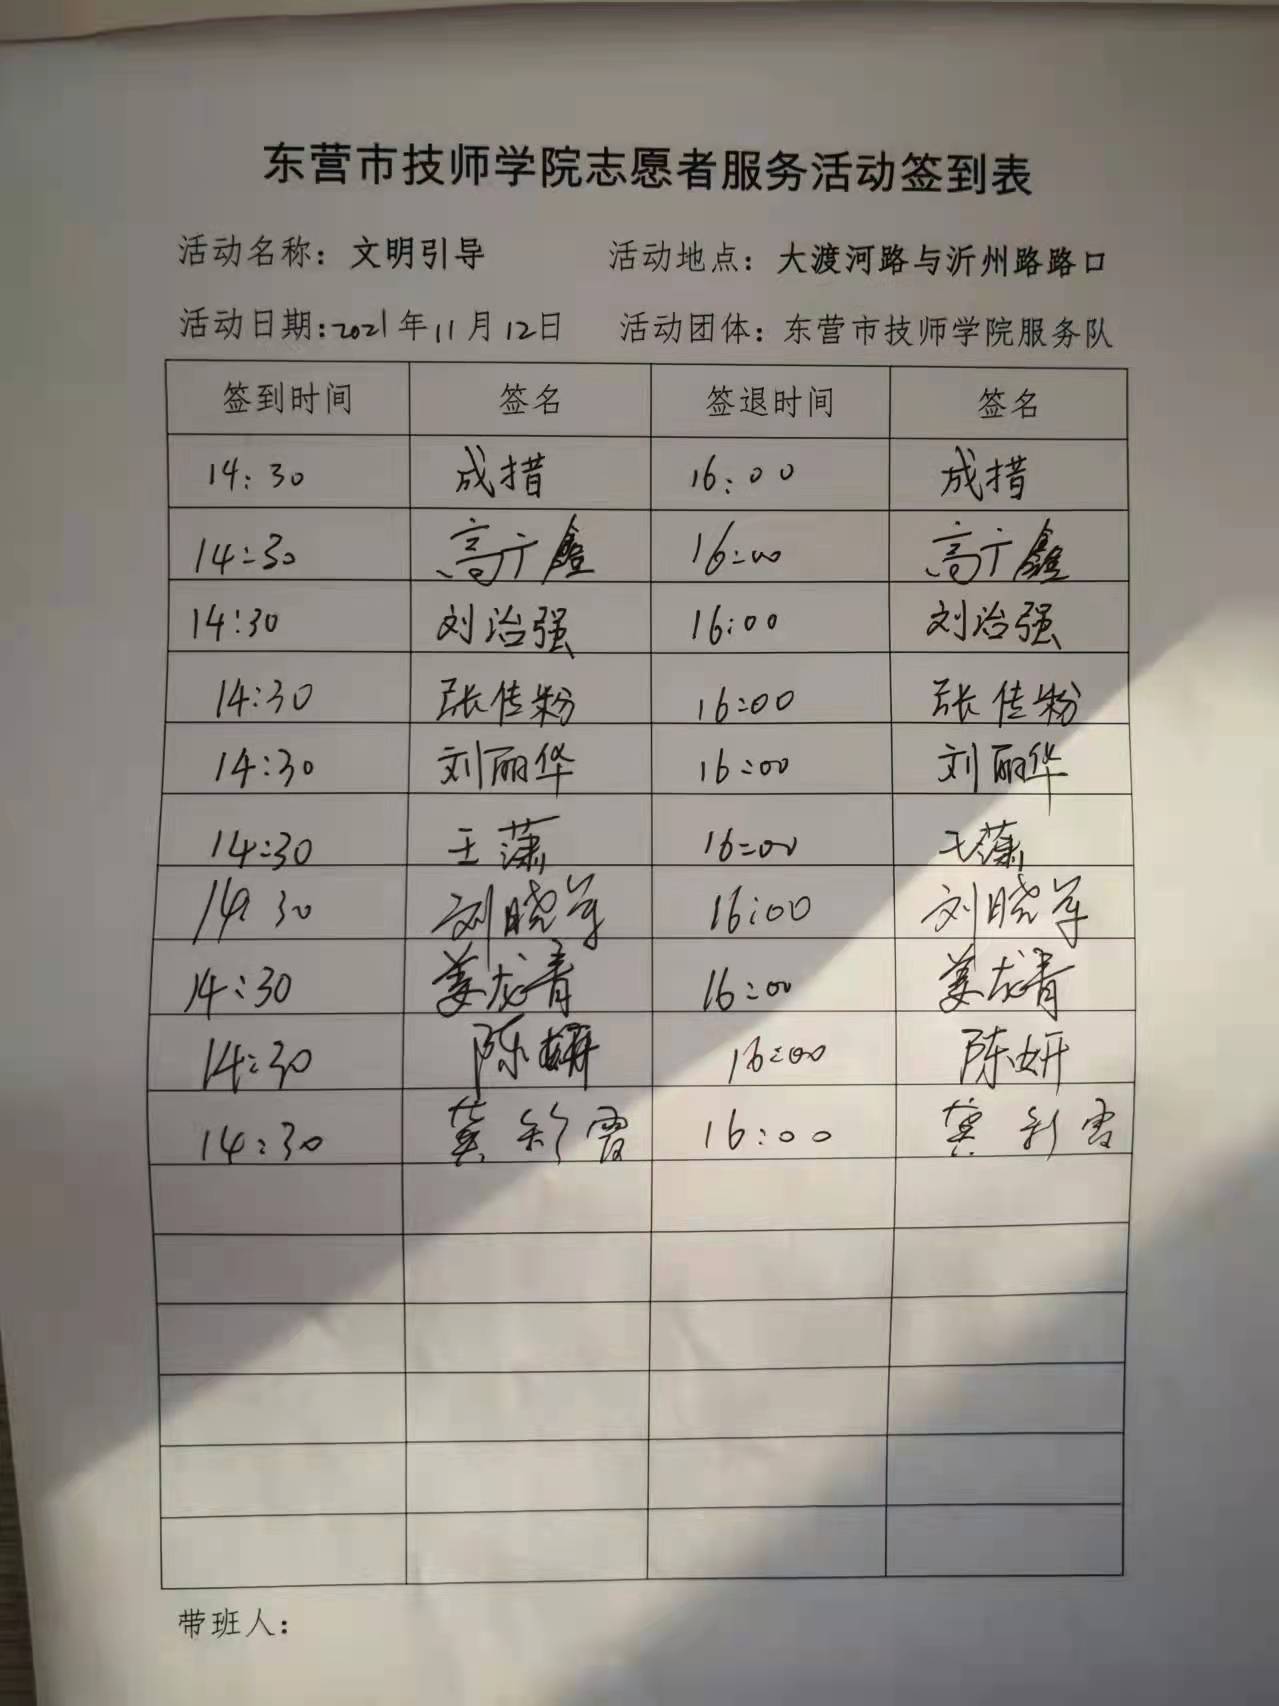 东营市技师学院志愿者服务活动签到表
活动名称：文明引导 活动地点：大渡河路与沂州路路口
活动日期:2021年11月12日 活动团体：东营市技师学院服务队
签到时间 签名 签退时间 签名
14:30 成措 16:00 成措
14:30 高广鑫 16:00 高广鑫
14:30 刘治强 16:00 刘治强
14:30 张传粉 16:00 张传粉
14:30 刘丽华 16:00 刘丽华
14:30 王薄 16:00 王薄
14:30 刘晓军 16:00 刘晓军
14:30 姜龙青 16:00 姜龙青
14:30 陈妍 16:00 陈妍
14:30 龚彩霞 16:00 龚彩霞
带班人：